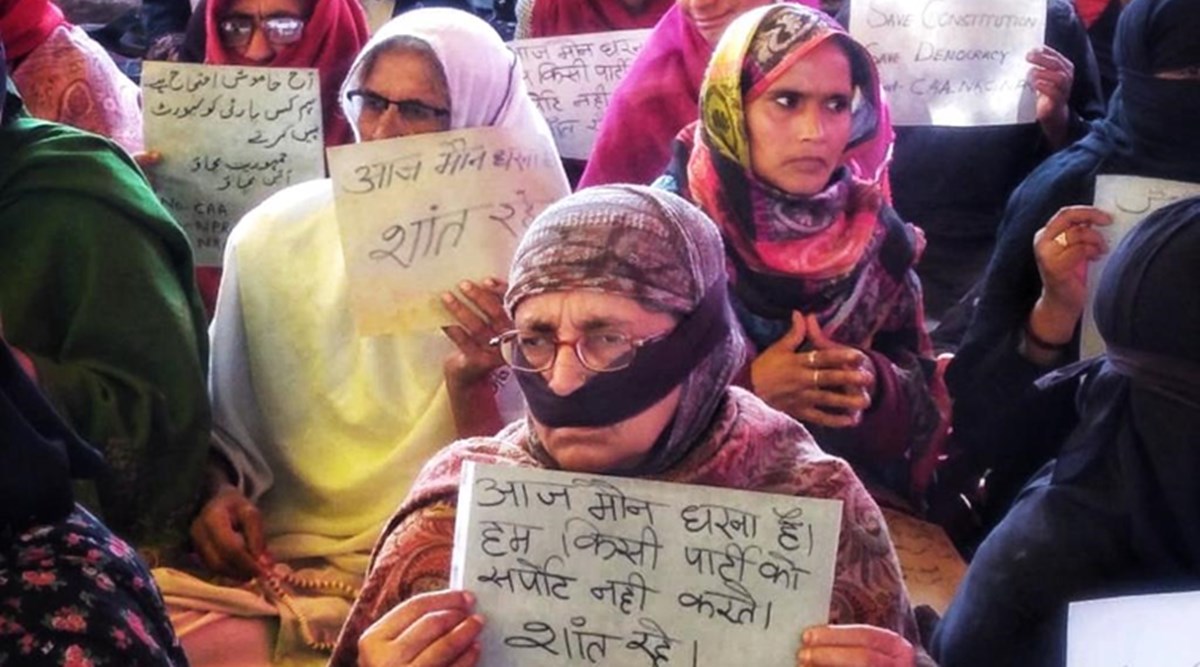 آج خاموش احتجاج ہے
ہم کس پارٹی کو سپورٹ
نہیں کرتے
جمہوریت بچاؤ
آئین بچاؤ
No CAA
NPR
आज मौन धरना
शांत रहे
आज मौन धरना
किसी पार्टी
नही
SAVE CONSTITUTION
SAVE DEMOCRACY
CAA.NRC.
आज मौन धरना है।
हम किसी पार्टी को
सर्पोट नही करते।
शांत रहे।